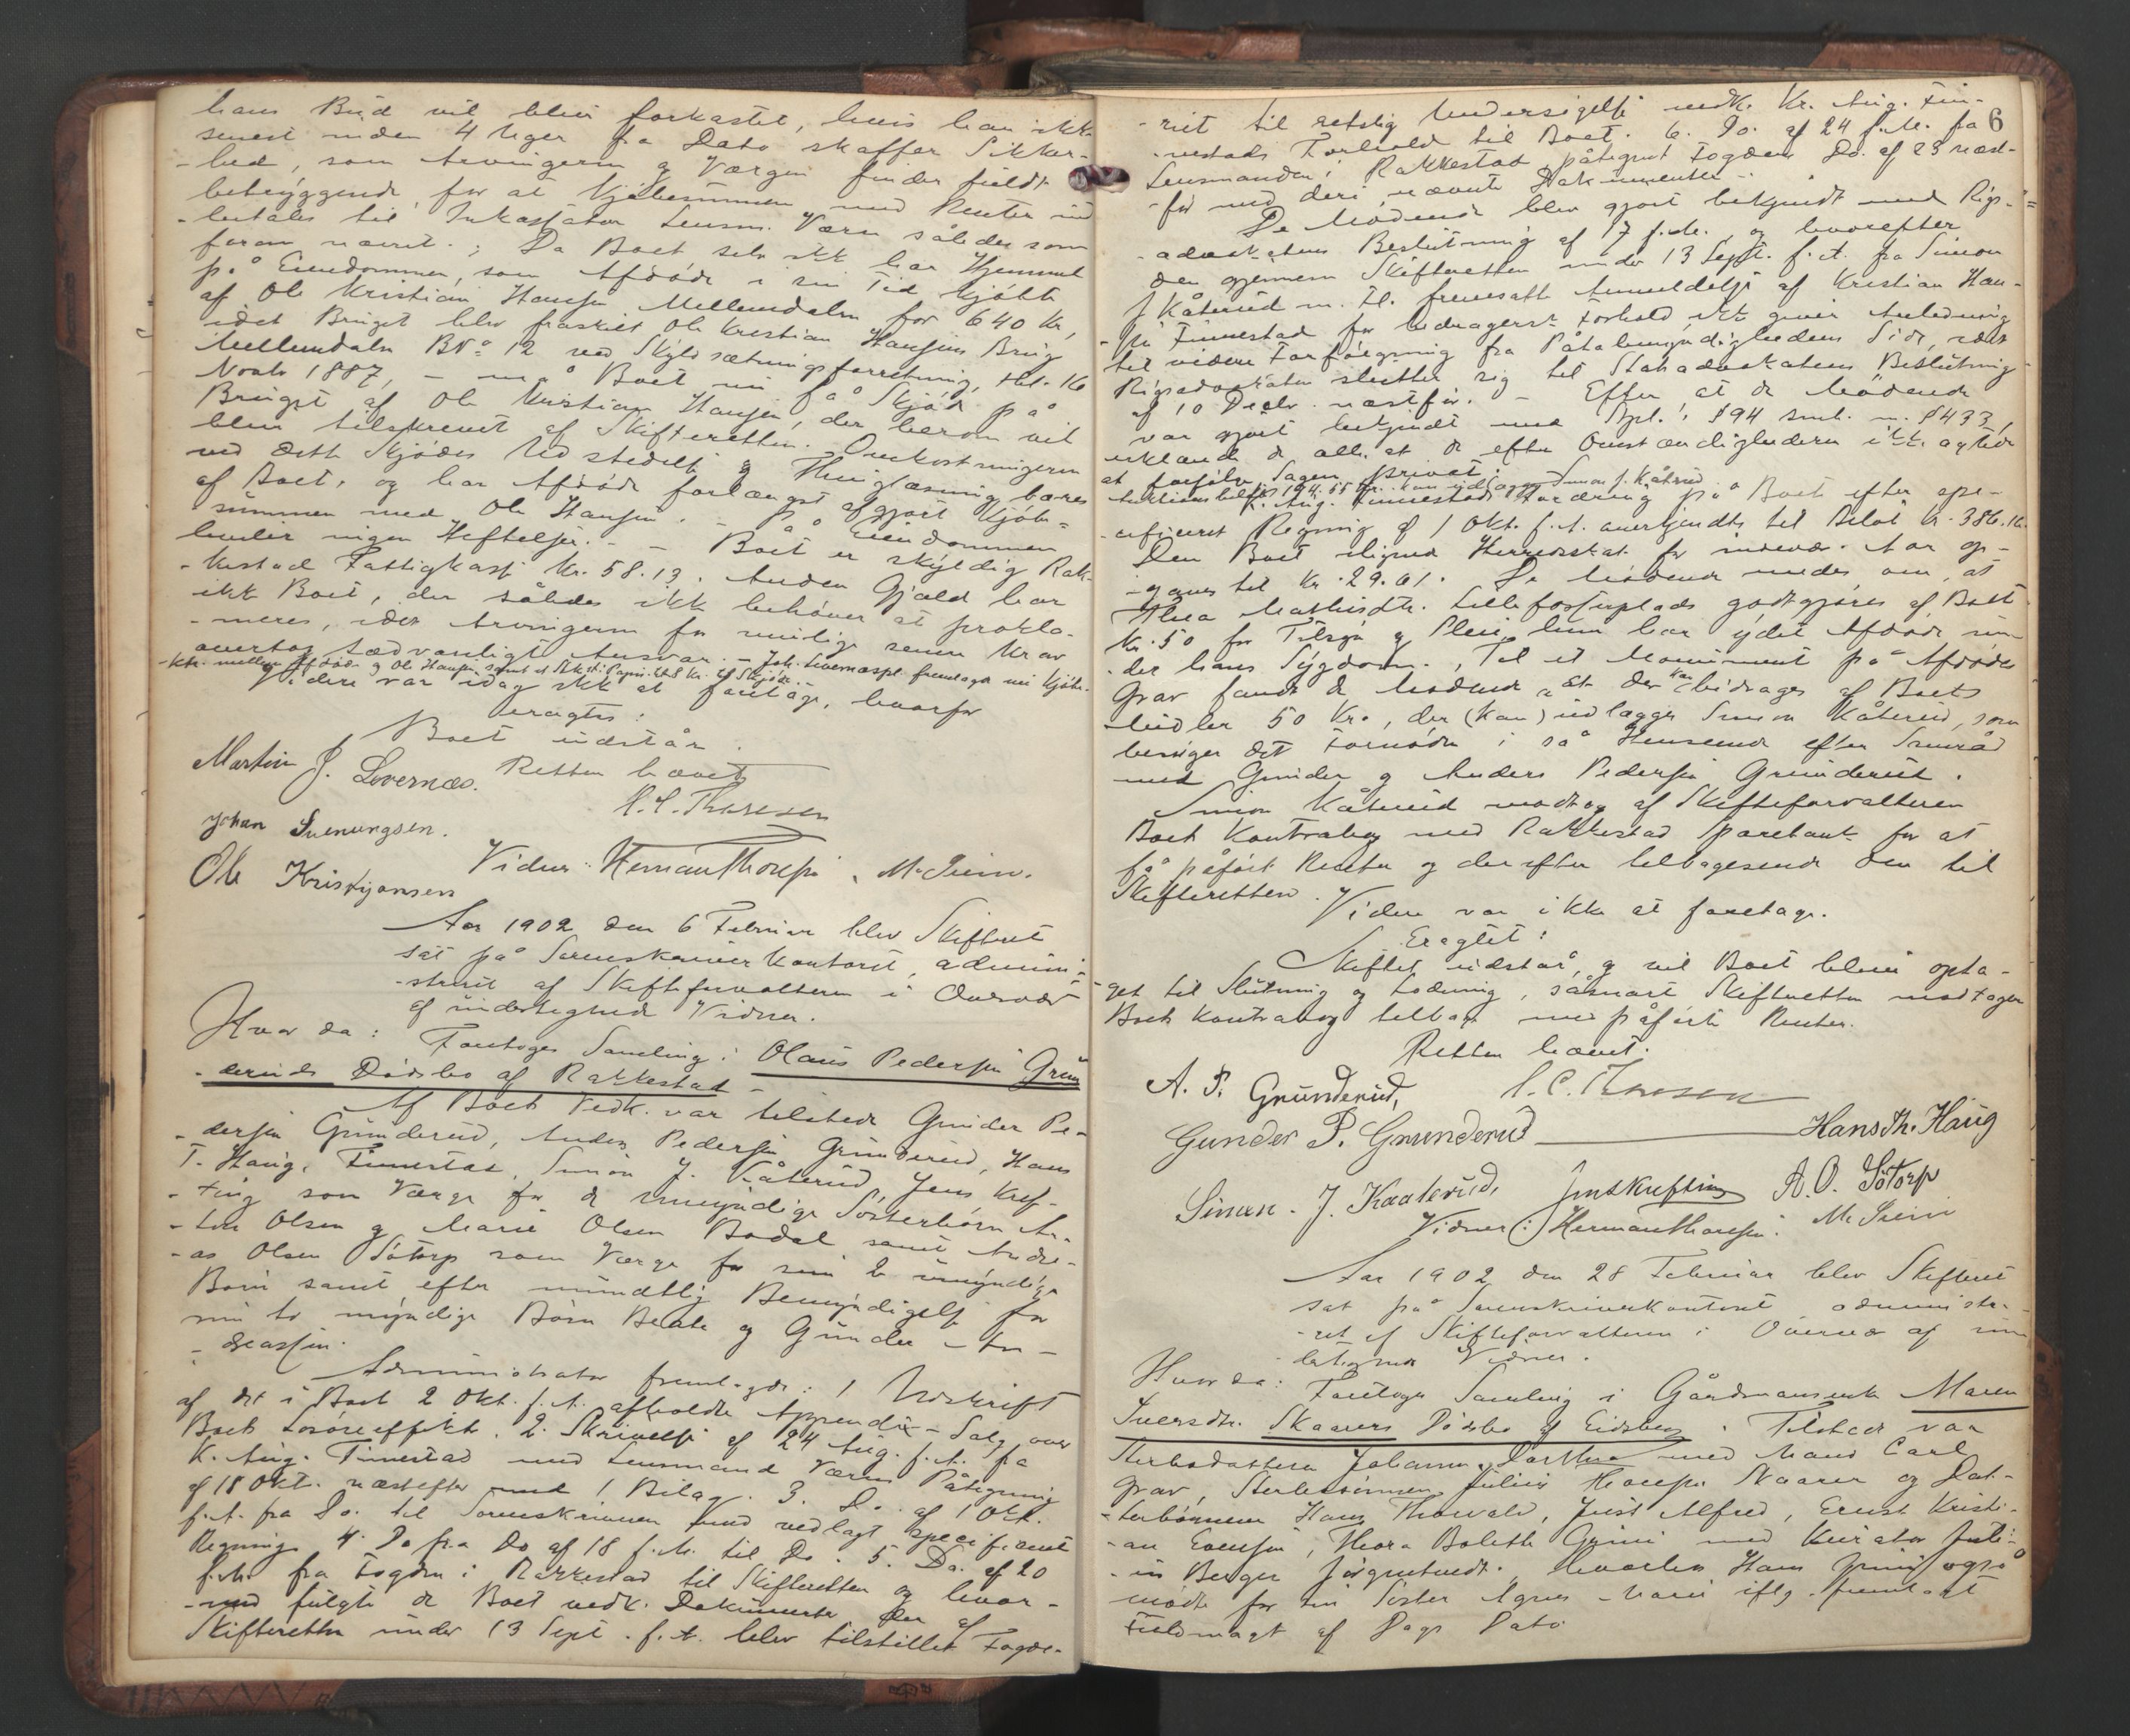 hans Bud vil blive forkastet, hvis han ikke
senest inden 4 Uger fra Dato skaffer Sikker-
-hed, som Arvingerne og Værgen finder fuldt
betryggende, for at Kjøbesummen med Renter ind-
-betales til Inkassator Lensm. Værn således som
foran nævnt.; Da Boet selv ikke har Hjemmel
på Eiendommen, som Afdøde i sin Tid kjøbte
af Ole Kristian Hansen Mellemdalen for 640 Kr,
idet Bruget blev fraskilt Ole Kristian Hansens Brug
Mellemdalen BNº 12 ved Skyldsætningsforretning, thl. 16
Novbr 1887, – må Boet nu få Skjøde på
Bruget af Ole Kristian Hansen, der herom vil
blive tilskrevet af Skifteretten. Omkostningerne
ved dette Skjødes Udstedelse og Thinglæsning bæres
af Boet, og har Afdøde forlængst afgjort Kjøbe-
summen med Ole Hansen. – På Eiendommen
hviler ingen Heftelser. – Boet er skyldig Rak-
-kestad Fattigkasse Kr. 58.13. Anden Gjæld har
ikke Boet, der således ikke behøver at prokla-
-meres, idet Arvingerne for mulige senere Krav
overtog sædvanligt Ansvar. – Joh. Svenungsen fremlagde nu Kjøbe-
-ktr. mellem Afdøde og Ole Hansen samt et Stk. st. Papir til 8 Kr. til Skjøde.
Videre var idag ikke at foretage, hvorfor
eragtes:
Boet udstår.
Martin J. Levernæs. Retten hævet
C. C. Thoresen
Johan Svenungsen.
Vidner: Herman Thoresen, M. Svein.
Ole Kristjansen
Aar 1902 den 6 Februar blev Skifteret
sat på Sorenskriverkontoret, admini-
-streret af Skifteforvalteren i Overvær
af undertegnede Vidner.
Hvor da: Foretoges Samling i Olaus Pedersen Grun-
-deruds Dødsbo af Rakkestad –
Af Boets Vedk. var tilstede Gunder Pe-
-dersen Grunderud, Anders Pedersen Grunderud, Hans
T. Haug, Finnestad, Simon J. Kåterud, Jens Kref-
-ting som Værge for de umyndige Søsterbørn An-
-ton Olsen og Marie Olsen Bodal samt Andre-
-as Olsen Søtorp som Værge for sine 2 umyndige
Børn samt efter mundtlig Bemyndigelse for
sine to myndige Børn Beate og Gunder An-
-dreassen.
Administrator fremlagde: 1 Udskrift
af det i Boet 2 Okt. f. A. afholdte Appendix-Salg over
Boets Løsøreeffekter. 2. Skrivelse af 24 Aug. f. A. fra
K. Aug. Finnestad med Lensmand Værns Påtegning
af 18 Okt. næstefter med 1 Bilag. 3. Do. af 1 Okt.
f. A. fra Do. til Sorenskriveren med vedlagt specificeret
Regning. 4. Do fra Do af 18 f. M. til Do. 5. Do. af 20
f. M. fra Fogden i Rakkestad til Skifteretten og hvor-
-med fulgte de Boet vedk. Dokumenter, der af
Skifteretten under 13 Sept. f. A. blev tilstillet Fogde-
6
-riet til retslig Undersøgelse vedk. Kr. Aug. Fin-
-nestads Forhold til Boet. 6. Do. af 24 f. M. fra
Lensmanden i Rakkestad påtegnet Fogdens Do. af 23 næst-
før med deri nævnte Dokumenter. –
De Mødende blev gjort bekjendt med Rigs-
-advokatens Beslutning af 17 f. M., og hvorefter
den gjennem Skifteretten under 13 Sept. f. A. fra Simon
J Kåterud m. Fl. fremsatte Anmeldelse af Kristian Han-
-sen Finnestad for bedragersk Forhold ikke giver Anledning
til videre Forfølgning fra Påtalemyndighedens Side, idet
Rigsadvokaten slutter sig til Statsadvokatens Beslutning
af 10 Decbr. næstfør. – Efter, at de Mødende
var gjort bekjendt med Spl. § 94 smh. m. § 433,
erklærede de alle, at de efter Omstændighederne ikke agtede
at forfølge Sagen privat.
K. Aug. Finnestads Fordring på Boet efter spe-
-cificeret Regning af 1 Okt. f. A. anerkjendtes til Beløb Kr. 386.16.
Den Boet ilignede Herredsskat for indevær. Aar op-
-gaves til Kr. 29.61. De Mødende enedes om, at
Thea Mathisdtr. Lillefosserplads godtgjøres af Boet
Kr. 50 for Tilsyn og Pleie, hun har ydet Afdøde un-
-der hans Sygdom. Til et Monument på Afdødes
Grav fandt de Mødende, at der kan bidrages af Boets
Midler 50 Kr., der (kan) udlægges Simon Kåterud, som
besørger det Fornødne i så Henseende efter Samråd
med Gunder og Anders Pedersen Grunderud.
Simon Kåterud modtog af Skifteforvalteren
Boets Kontrabog med Rakkestad Sparebank for at
få påført Renter og derefter tilbagesende den til
Skifteretten. Videre var ikke at foretage.
Eragtet:
Skiftet udstår, og vil Boet blive opta-
-get til Slutning og Lodning, såsnart Skifteretten modtager
Boets Kontrabog tilbage med påførte Renter.
Retten hævet.
A. P. Grunderud, C. C. Thoresen
Gunder P. Grunderud Hans Th. Haug
Simen. J. Kaaterud, Jens Krefting A. O. Søtorp
Vidner: Herman Thoresen. M. Svein
Aar 1902 den 28 Februar blev Skifteret
sat på Sorenskriverkontoret administre-
-ret af Skifteforvalteren i Overvær af un-
dertegnede Vidner.
Hvor da: Foretoges Samling i Gårdmandsenke Maren
Iversdtr. Skaarers Dødsbo af Eidsberg. Tilstede var
Sterbodattern Johanne Dorthea med Mand Carl
Grav, Sterbosønnen Julius Hansen Skaarer og Dat-
-terbørnene Hans Thorvald, Just Alfred, Ernst Kristi-
-an Evensen, Thora Bolette Grini med Kurator Juli-
-us Berger Jørgentvedt. Hvorhos Hans Grini også
mødte for sin Søster Agnes Marie iflg. fremlagt
Fuldmagt af Dags Dato